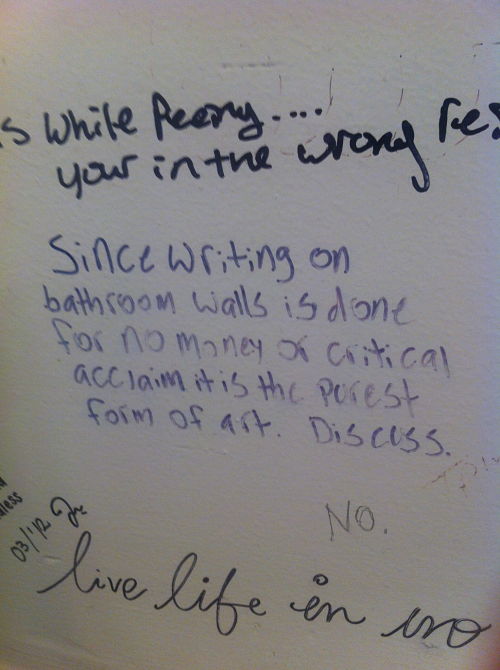 s while Peeing....
your in the wrong Re
Since writing on
bathroom walls is done
for no money or critical
acclaim it is the purest
form of art. Discuss.
No.
03/'12
live life en